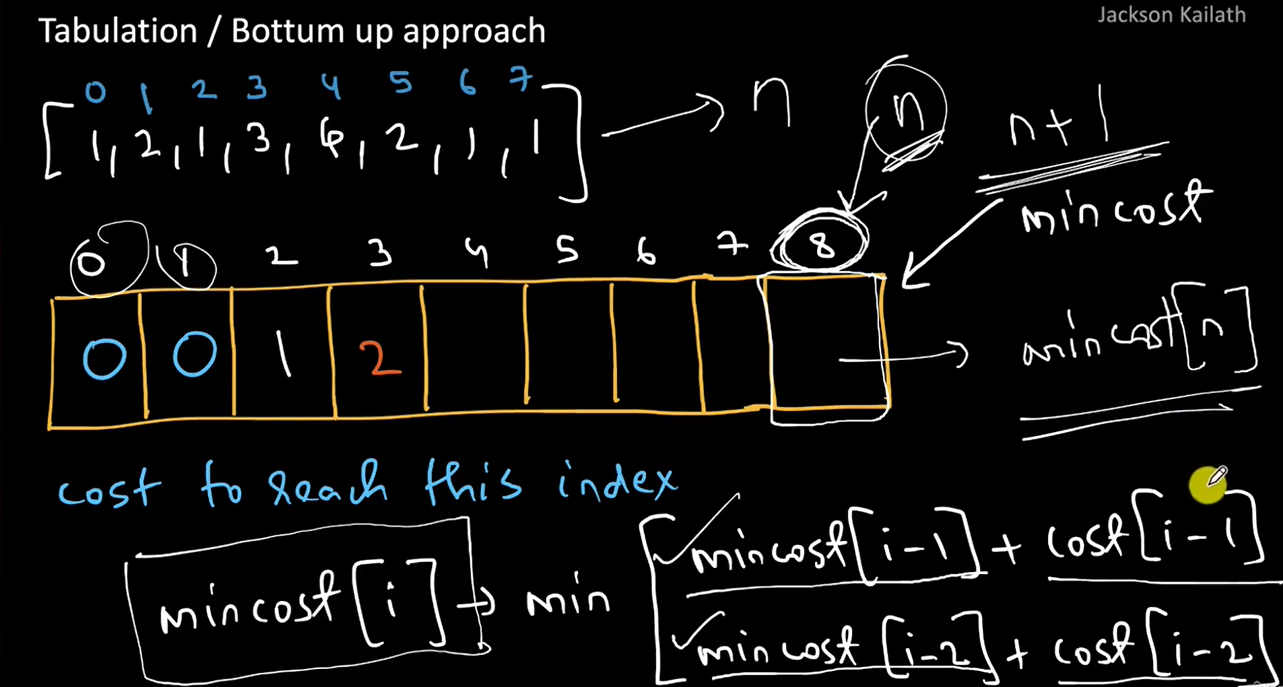 Jackson Kailath
Tabulation / Bottum up approach
0 1 2 3 4 5 6 7
[1, 2, 1, 3, 4, 2, 1, 1] → n
n
n+1
mincost
0 1 2 3 4 5 6 7 8
0 0 1 2
→ mincost[n]
cost to reach this index
mincost[i] → min
mincost[i-1] + cost[i-1]
mincost[i-2] + cost[i-2]